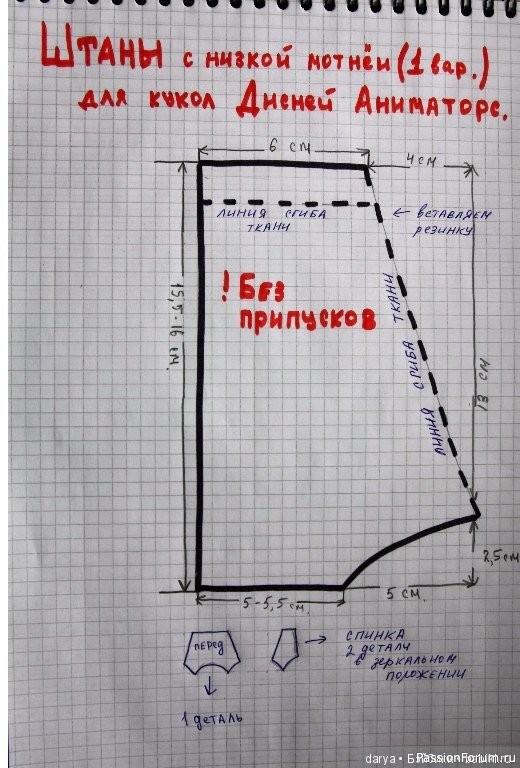 Штаны с низкой мотнёй (1 вар.)
для кукол Дисней Аниматорс.
6 см
4 см
линия сгиба
ткани
← вставляем
резинку
! Без
припусков
15,5-16 см.
линия сгиба ткани
13 см
2,5 см
5-5,5 см.
5 см.
перед
→ спинка
2 детали
в зеркальном
положении
1 деталь
darya •
PassionForum.ru